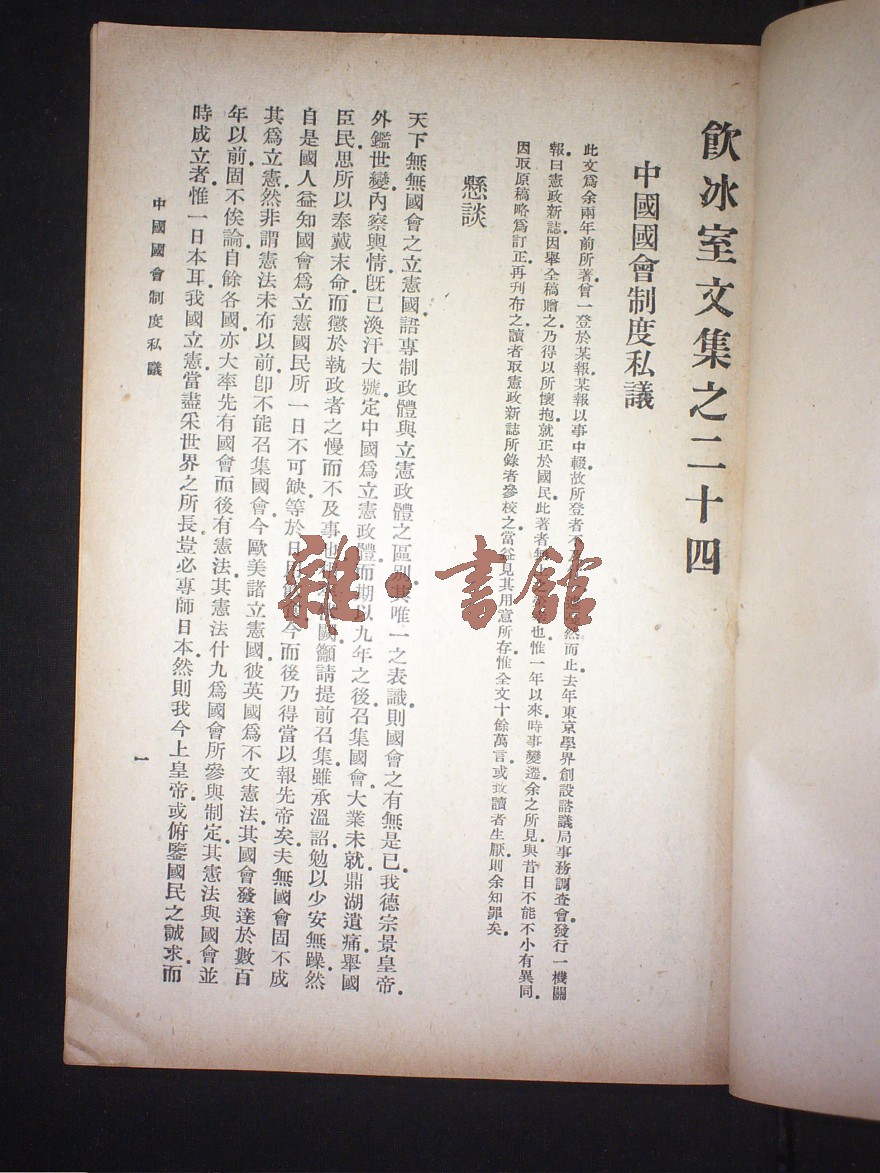 飲冰室文集之二十四
中國國會制度私議
此文爲余兩年前所著曾一登於某報某報以事中輟故所登者不然而止去年東京學界創設諮議局事務調查會發行一機關
報曰憲政新誌因舉全稿贈之乃得以所懷抱就正於國民此著者無也惟一年以來時事變遷余之所見與昔日不能不小有異同
因取原稿略爲訂正再刊布之讀者取憲政新誌所錄者參校之當益見其用意所存惟全文十餘萬言或致讀者生厭則余知罪矣
懸談
天下無無國會之立憲國語專制政體與立憲政體之區別其唯一之表識則國會之有無是已我德宗景皇帝
外鑑世變內察輿情旣已渙汗大號定中國爲立憲政體而期以九年之後召集國會大業未就鼎湖遺痛舉國
臣民思所以奉戴末命而懲於執政者之慢而不及事也籲請提前召集雖承溫詔勉以少安無躁然
自是國人益知國會爲立憲國民所一日不可缺等於日今而後乃得當以報先帝矣夫無國會固不成
其爲立憲然非謂憲法未布以前卽不能召集國會今歐美諸立憲國彼英國爲不文憲法其國會發達於數百
年以前固不俟論自餘各國亦大率先有國會而後有憲法其憲法什九爲國會所參與制定其憲法與國會並
時成立者惟一日本耳我國立憲當盡采世界之所長豈必專師日本然則我今上皇帝或俯鑒國民之誠求而
中國國會制度私議
一
雜·書館